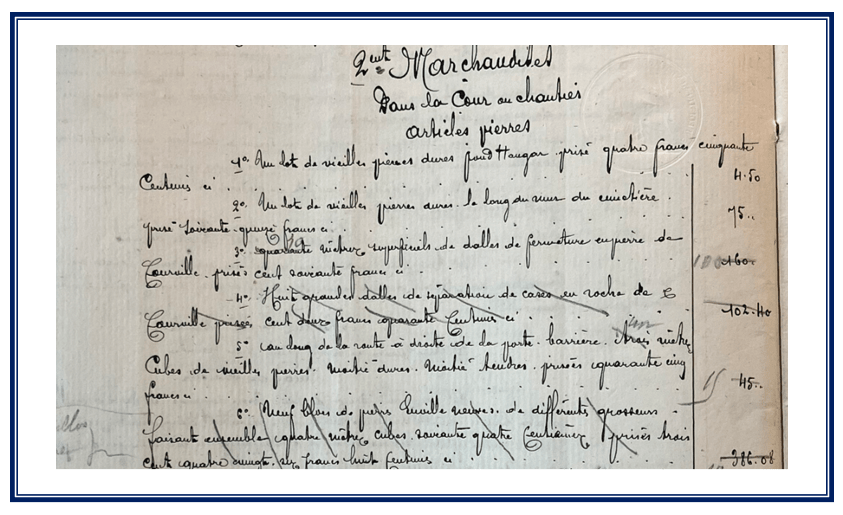 2ent Marchandises
Dans la Cour ou chantier
articles pierres
1o. Un lot de vieilles pierres dures fond Hangar prisé quatre francs cinquante
Centimes ci 4.50
2o. Un lot de vieilles pierres dures le long du mur du cimetière
prisé soixante quinze francs ci 75..
3o. quarante mètres superficiels de dalles de fermeture en pierre de
Courville prisés cent soixante francs ci 160.
4o. Huit grandes dalles de séparation de cases en roche de
Courville prisées Cent deux francs quarante Centimes ci 102.40
5o au long de la route à droite de la porte barrière. trois mètres
Cubes de vieilles pierres. moitié dures. moitié tendres. prisées quarante cinq
francs ci 45..
6o. Neuf blocs de pierre Euville neuves. de différents grosseurs
faisant ensemble quatre mètres cubes soixante quatre Centièmes prisés trois
cent quatre vingt six francs huit Centimes ci 386.08